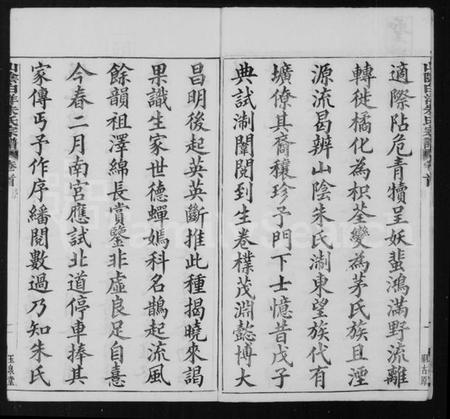 適際阽危青犢呈妖蜚鴻滿野流離
轉徙橘化為枳荃變為茅氏族且湮
源流曷辨山陰朱氏淛東望族代有
壙僚其裔穰珍予門下士憶昔戊子
典試淛闈閱到生卷樸茂淵懿博大
昌明後起英英斷推此種揭曉來謁
果識生家世德蟬嫣科名鵲起流風
餘韻祖澤綿長賞鑒非虛良足自憙
今春二月南宮應試北道停車捧其
家傳丐予作序繙閱數過乃知朱氏
山陰白洋朱氏宗譜 卷首
玉泉堂